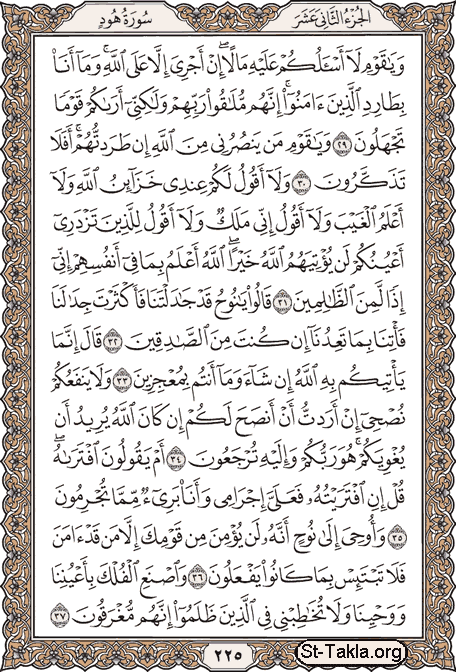 الجزء الثاني عشر
سورة هود
وَيَٰقَوْمِ لَآ أَسْـَٔلُكُمْ عَلَيْهِ مَالًا ۖ إِنْ أَجْرِىَ إِلَّا عَلَى ٱللَّهِ ۚ وَمَآ أَنَا۠
بِطَارِدِ ٱلَّذِينَ ءَامَنُوٓا۟ ۚ إِنَّهُم مُّلَٰقُوا۟ رَبِّهِمْ وَلَٰكِنِّىٓ أَرَىٰكُمْ قَوْمًا
تَجْهَلُونَ ٢٩ وَيَٰقَوْمِ مَن يَنصُرُنِى مِنَ ٱللَّهِ إِن طَرَدتُّهُمْ ۚ أَفَلَا
تَذَكَّرُونَ ٣٠ وَلَآ أَقُولُ لَكُمْ عِندِى خَزَآئِنُ ٱللَّهِ وَلَآ
أَعْلَمُ ٱلْغَيْبَ وَلَآ أَقُولُ إِنِّى مَلَكٌ وَلَآ أَقُولُ لِلَّذِينَ تَزْدَرِىٓ
أَعْيُنُكُمْ لَن يُؤْتِيَهُمُ ٱللَّهُ خَيْرًا ۖ ٱللَّهُ أَعْلَمُ بِمَا فِىٓ أَنفُسِهِمْ ۖ إِنِّىٓ
إِذًا لَّمِنَ ٱلظَّٰلِمِينَ ٣١ قَالُوا۟ يَٰنُوحُ قَدْ جَٰدَلْتَنَا فَأَكْثَرْتَ جِدَٰلَنَا
فَأْتِنَا بِمَا تَعِدُنَآ إِن كُنتَ مِنَ ٱلصَّٰدِقِينَ ٣٢ قَالَ إِنَّمَا
يَأْتِيكُم بِهِ ٱللَّهُ إِن شَآءَ وَمَآ أَنتُم بِمُعْجِزِينَ ٣٣ وَلَا يَنفَعُكُمْ
نُصْحِىٓ إِنْ أَرَدتُّ أَنْ أَنصَحَ لَكُمْ إِن كَانَ ٱللَّهُ يُرِيدُ أَن
يُغْوِيَكُمْ ۚ هُوَ رَبُّكُمْ وَإِلَيْهِ تُرْجَعُونَ ٣٤ أَمْ يَقُولُونَ ٱفْتَرَىٰهُ ۖ
قُلْ إِنِ ٱفْتَرَيْتُهُۥ فَعَلَىَّ إِجْرَامِى وَأَنَا۠ بَرِىٓءٌ مِّمَّا تُجْرِمُونَ
٣٥ وَأُوحِىَ إِلَىٰ نُوحٍ أَنَّهُۥ لَن يُؤْمِنَ مِن قَوْمِكَ إِلَّا مَن قَدْ ءَامَنَ
فَلَا تَبْتَئِسْ بِمَا كَانُوا۟ يَفْعَلُونَ ٣٦ وَٱصْنَعِ ٱلْفُلْكَ بِأَعْيُنِنَا
وَوَحْيِنَا وَلَا تُخَٰطِبْنِى فِى ٱلَّذِينَ ظَلَمُوٓا۟ ۚ إِنَّهُم مُّغْرَقُونَ ٣٧
٢٢٥
St-Takla.org